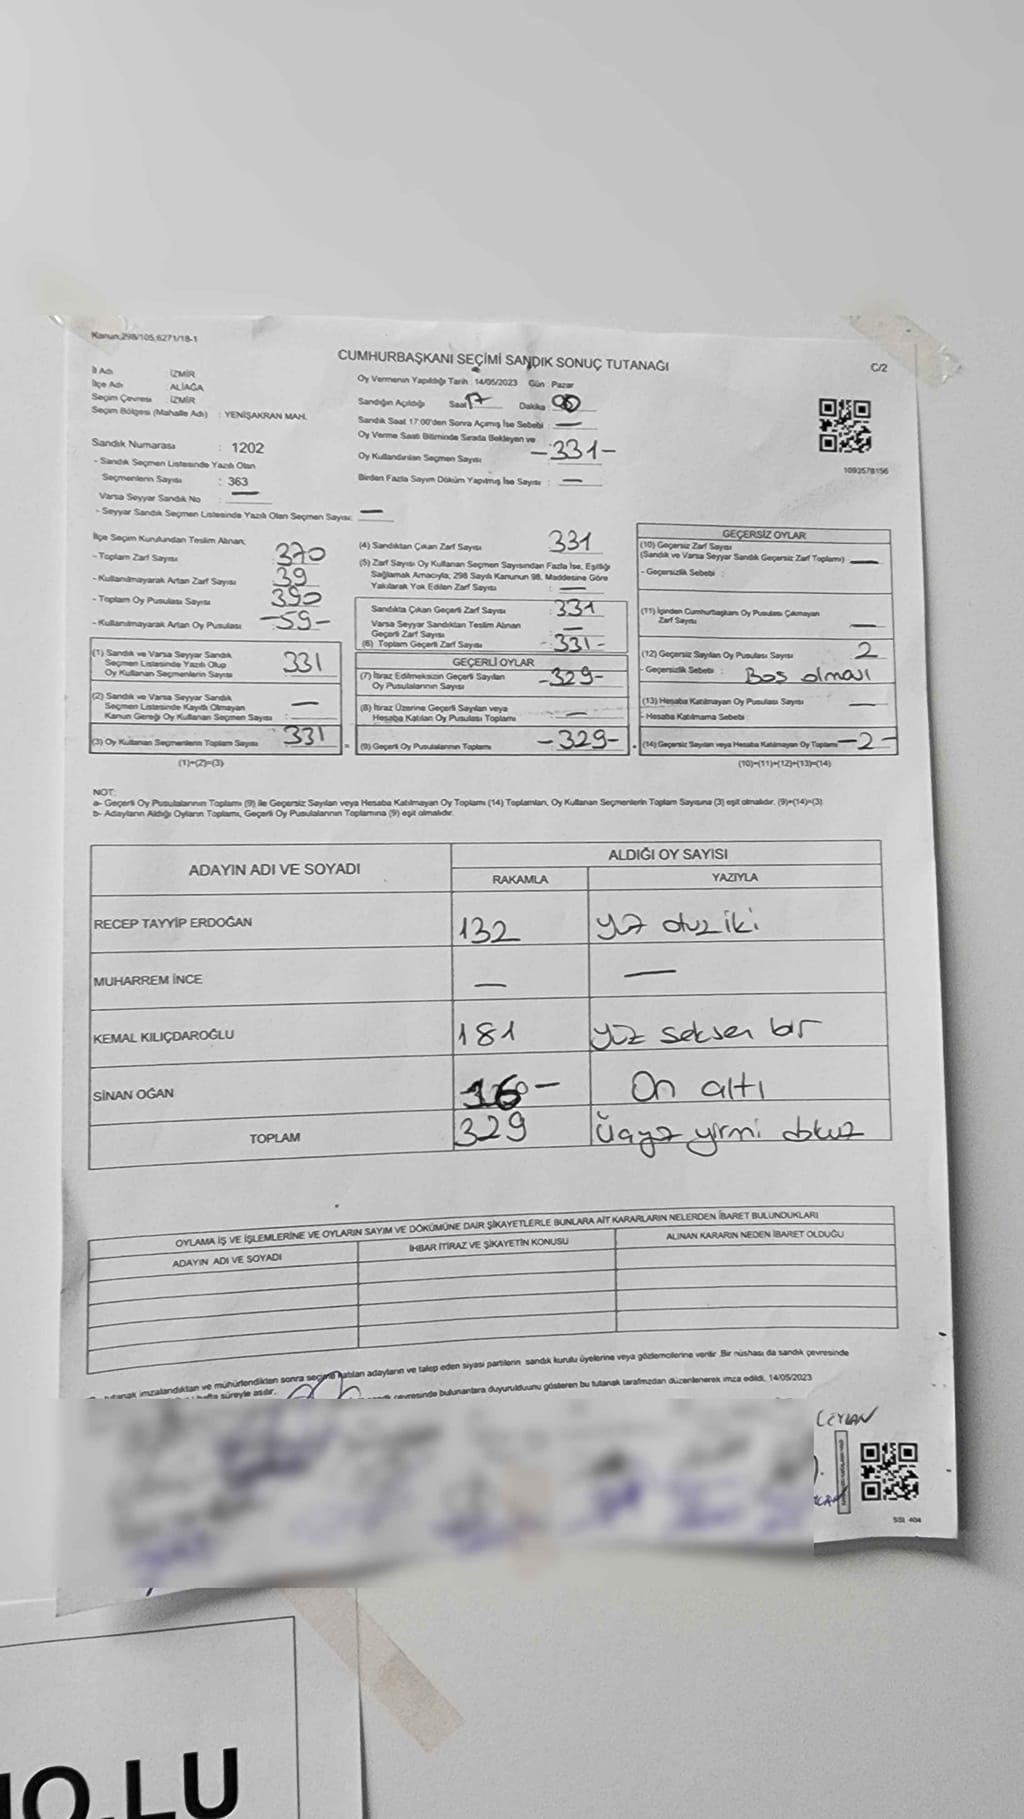 Kanun:298/105;6271/18-1
CUMHURBAŞKANI SEÇİMİ SANDIK SONUÇ TUTANAĞI
C/2
İl Adı İZMİR
İlçe Adı ALİAĞA
Seçim Çevresi İZMİR
Seçim Bölgesi (Mahalle Adı) : YENİŞAKRAN MAH.
Oy Vermenin Yapıldığı Tarih : 14/05/2023 Gün : Pazar
Sandığın Açıldığı Saat 17 Dakika 00
Sandık Saat 17:00'den Sonra Açımış İse Sebebi : —
Oy Verme Saati Bitiminde Sırada Bekleyen ve
Oy Kullandırılan Seçmen Sayısı : -331-
Birden Fazla Sayım Döküm Yapılmış İse Sayısı : —
1093578156
Sandık Numarası : 1202
- Sandık Seçmen Listesinde Yazılı Olan
Seçmenlerin Sayısı : 363
Varsa Seyyar Sandık No : —
- Seyyar Sandık Seçmen Listesinde Yazılı Olan Seçmen Sayısı: —
İlçe Seçim Kurulundan Teslim Alınan;
- Toplam Zarf Sayısı 370
- Kullanılmayarak Artan Zarf Sayısı 39
- Toplam Oy Pusulası Sayısı 390
- Kullanılmayarak Artan Oy Pusulası -59-
(1) Sandık ve Varsa Seyyar Sandık
Seçmen Listesinde Yazılı Olup
Oy Kullanan Seçmenlerin Sayısı 331
(2) Sandık ve Varsa Seyyar Sandık
Seçmen Listesinde Kayıtlı Olmayan
Kanun Gereği Oy Kullanan Seçmen Sayısı : —
(3) Oy Kullanan Seçmenlerin Toplam Sayısı 331
(1)+(2)=(3)
(4) Sandıktan Çıkan Zarf Sayısı 331
(5) Zarf Sayısı Oy Kullanan Seçmen Sayısından Fazla İse, Eşitliği
Sağlamak Amacıyla; 298 Sayılı Kanunun 98. Maddesine Göre
Yakılarak Yok Edilen Zarf Sayısı : —
Sandıkta Çıkan Geçerli Zarf Sayısı : 331
Varsa Seyyar Sandıktan Teslim Alınan
Geçerli Zarf Sayısı : —
(6) Toplam Geçerli Zarf Sayısı : -331-
GEÇERLİ OYLAR
(7) İtiraz Edilmeksizin Geçerli Sayılan
Oy Pusulalarının Sayısı -329-
(8) İtiraz Üzerine Geçerli Sayılan veya
Hesaba Katılan Oy Pusulası Toplamı : —
(9) Geçerli Oy Pusulalarının Toplamı -329-
GEÇERSİZ OYLAR
(10) Geçersiz Zarf Sayısı
(Sandık ve Varsa Seyyar Sandık Geçersiz Zarf Toplamı) —
- Geçersizlik Sebebi :
(11) İçinden Cumhurbaşkanı Oy Pusulası Çıkmayan
Zarf Sayısı —
(12) Geçersiz Sayılan Oy Pusulası Sayısı 2
- Geçersizlik Sebebi : Boş olması
(13) Hesaba Katılmayan Oy Pusulası Sayısı —
- Hesaba Katılmama Sebebi :
(14) Geçersiz Sayılan veya Hesaba Katılmayan Oy Toplamı -2-
(10)+(11)+(12)+(13)=(14)
NOT:
a- Geçerli Oy Pusulalarının Toplamı (9) ile Geçersiz Sayılan veya Hesaba Katılmayan Oy Toplamı (14) Toplamları, Oy Kullanan Seçmenlerin Toplam Sayısına (3) eşit olmalıdır. (9)+(14)=(3)
b- Adayların Aldığı Oyların Toplamı, Geçerli Oy Pusulalarının Toplamına (9) eşit olmalıdır.
ADAYIN ADI VE SOYADI
ALDIĞI OY SAYISI
RAKAMLA YAZIYLA
RECEP TAYYİP ERDOĞAN 132 yüz otuz iki
MUHARREM İNCE — —
KEMAL KILIÇDAROĞLU 181 yüz seksen bir
SİNAN OĞAN 16- On altı
TOPLAM 329 Üçyüz yirmi dokuz
OYLAMA İŞ VE İŞLEMLERİNE VE OYLARIN SAYIM VE DÖKÜMÜNE DAİR ŞİKAYETLERLE BUNLARA AİT KARARLARIN NELERDEN İBARET BULUNDUKLARI
ADAYIN ADI VE SOYADI İHBAR İTİRAZ VE ŞİKAYETİN KONUSU ALINAN KARARIN NEDEN İBARET OLDUĞU
tutanak imzalandıktan ve mühürlendikten sonra seçime katılan adayların ve talep eden siyasi partilerin sandık kurulu üyelerine veya gözlemcilerine verilir. Bir nüshası da sandık çevresinde
hafta süreyle asılır. çevresinde bulunanlara duyurulduunu gösteren bu tutanak tarafımızdan düzenlenerek imza edildi. 14/05/2023
CEYLAN
SSI 404
O.LU